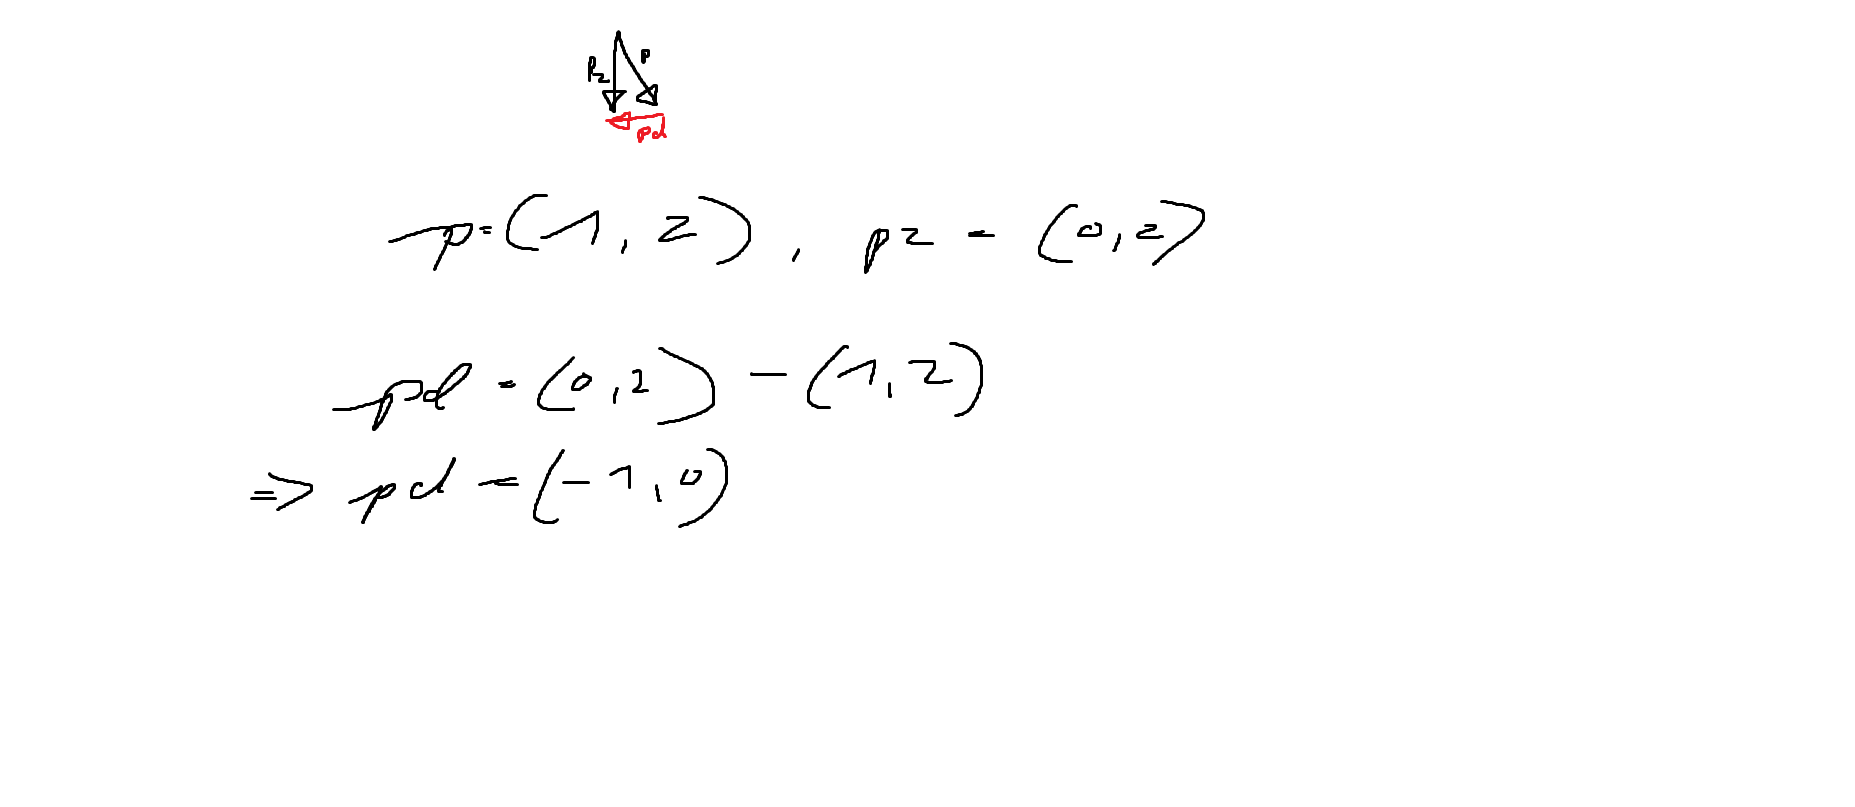 p₂ p
pd
p=(1,2), p2 = (0,2)
pd = (0,2) - (1,2)
=> pd = (-1,0)